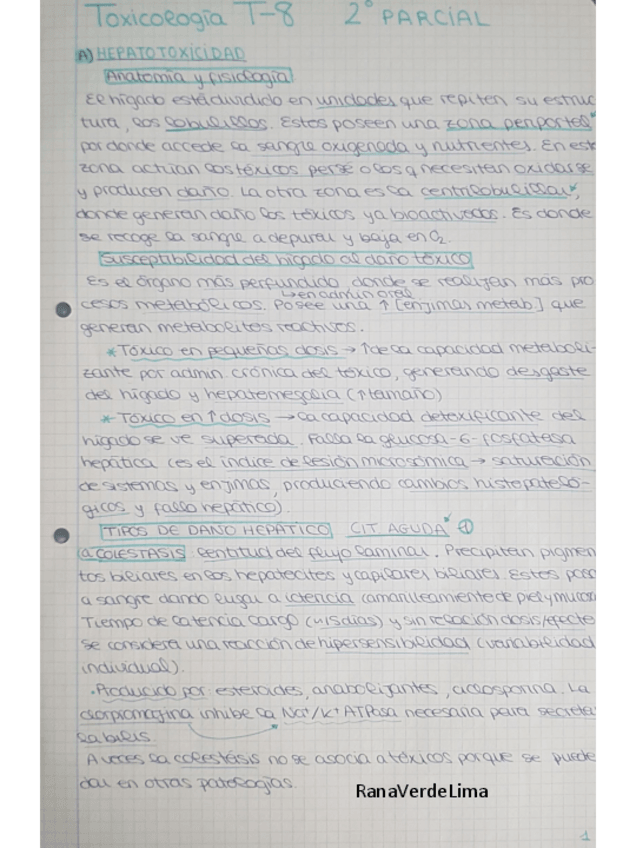 Toxicología T-8 2º PARCIAL
A) HEPATOTOXICIDAD
Anatomía y fisiología
El hígado está dividido en unidades que repiten su estruc
tura, los lobulillos. Estos poseen una zona periportal
por donde accede la sangre oxigenada y nutrientes. En est
zona actúan los tóxicos per se o los q necesitan oxidarse
y producen daño. La otra zona es la centrolobulillar,
donde generan daño los tóxicos ya bioactivados. Es donde
se recoge la sangre a depurar y baja en O2.
Susceptibilidad del hígado al daño tóxico
Es el órgano más perfundido, donde se realizan más pro
↳ en admin oral
cesos metabólicos. Posee una ↑ [enzimas metab.] que
generan metabolitos reactivos.
* Tóxico en pequeñas dosis → ↑ de la capacidad metaboli-
zante por admin. crónica del tóxico, generando desgaste
del hígado y hepatomegalia (↑ tamaño)
* Tóxico en ↑ dosis → la capacidad detoxificante del
hígado se ve superada. Falla la glucosa-6-fosfatasa
hepática (es el índice de lesión microsómica → saturación
de sistemas y enzimas, produciendo cambios histopatoló-
gicos y fallo hepático).
TIPOS DE DAÑO HEPÁTICO CIT AGUDA ①
a COLESTASIS lentitud del flujo laminar. Precipitan pigmen
tos biliares en los hepatocitos y capilares biliares. Estos pasa
a sangre dando lugar a ictericia (amarilleamiento de piel y mucos
Tiempo de latencia largo (≈15 días) y sin relación dosis/efecto
se considera una reacción de hipersensibilidad (variabilidad
individual).
· Producido por: esteroides, anabolizantes, ciclosporina. La
clorpromazina inhibe la Na+/K+ ATPasa necesaria para secreta
la bilis.
A veces la colestasis no se asocia a tóxicos porque se puede
dar en otras patologías.
RanaVerdeLima
1